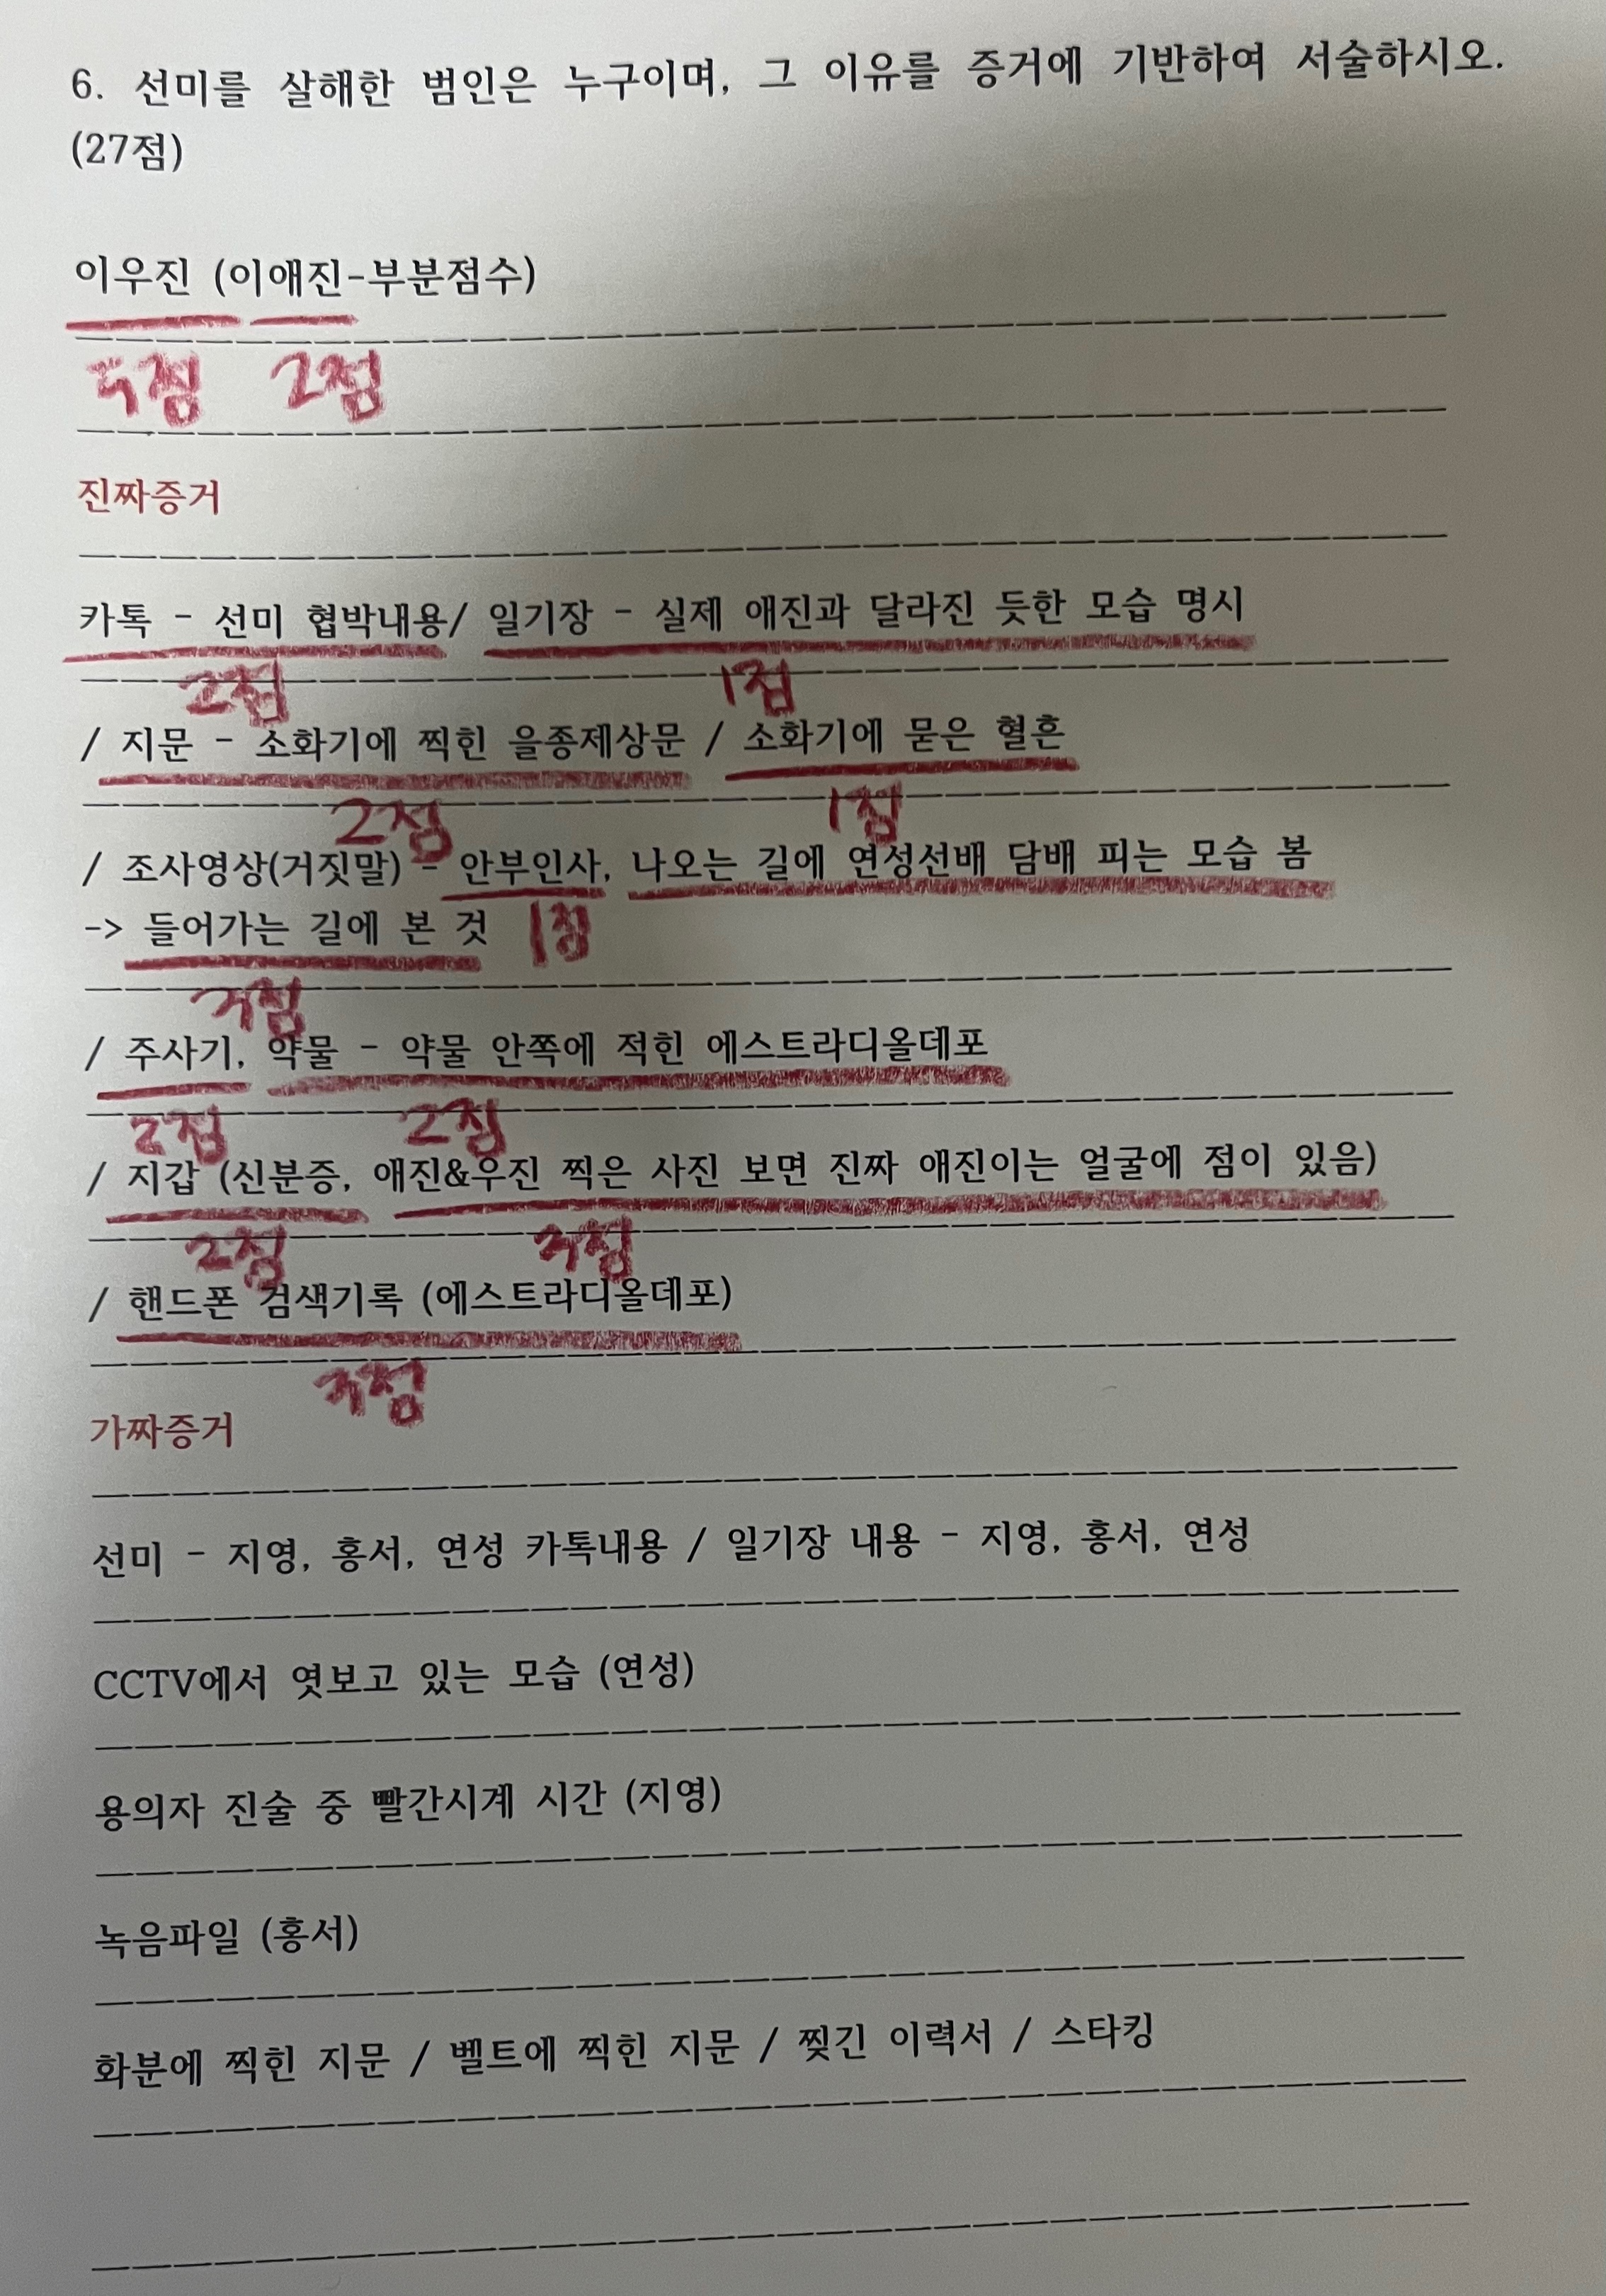 6. 선미를 살해한 범인은 누구이며, 그 이유를 증거에 기반하여 서술하시오.
(27점)
이우진 (이애진-부분점수)
5점 2점
진짜증거
카톡 - 선미 협박내용/ 일기장 - 실제 애진과 달라진 듯한 모습 명시
2점 1점
/ 지문 - 소화기에 찍힌 을종제상문 / 소화기에 묻은 혈흔
2점 1점
/ 조사영상(거짓말) - 안부인사, 나오는 길에 연성선배 담배 피는 모습 봄
-> 들어가는 길에 본 것 1점
3점
/ 주사기, 약물 - 약물 안쪽에 적힌 에스트라디올데포
2점 2점
/ 지갑 (신분증, 애진&우진 찍은 사진 보면 진짜 애진이는 얼굴에 점이 있음)
2점 3점
/ 핸드폰 검색기록 (에스트라디올데포)
3점
가짜증거
선미 - 지영, 홍서, 연성 카톡내용 / 일기장 내용 - 지영, 홍서, 연성
CCTV에서 엿보고 있는 모습 (연성)
용의자 진술 중 빨간시계 시간 (지영)
녹음파일 (홍서)
화분에 찍힌 지문 / 벨트에 찍힌 지문 / 찢긴 이력서 / 스타킹